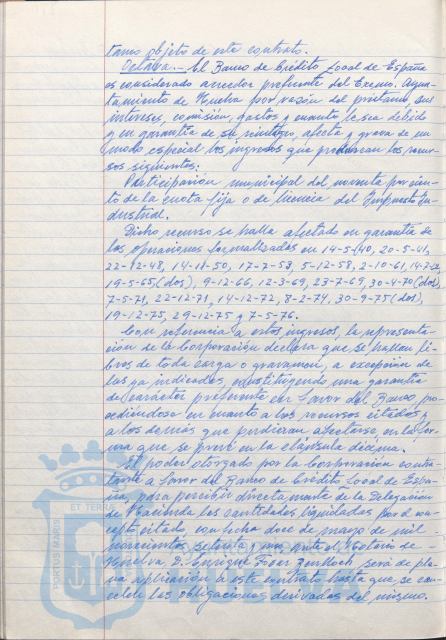 tamo objeto de este contrato.
Octava.- El Banco de Crédito Local de España
es considerado acreedor preferente del Excmo. Ayun-
tamiento de Huelva por razón del préstamo, sus
intereses, comisión, gastos y cuanto le sea debido
y en garantía de su reintegro, afecta y grava de un
modo especial los ingresos que produzcan los recur-
sos siguientes:
Participación municipal del noventa por cien-
to de la cuota fija o de licencia del Impuesto In-
dustrial.
Dicho recurso se halla afectado en garantía de
las operaciones formalizadas en 14-5-40, 20-5-41,
22-12-48, 14-11-50, 17-7-53, 5-12-58, 2-10-61,
19-5-65 (dos), 9-12-66, 12-3-69, 23-7-69, 30-4-70 (dos),
7-5-71, 22-12-71, 14-12-72, 8-2-74, 30-9-75 (dos),
19-12-75, 29-12-75 y 7-5-76.
Con referencia a estos ingresos, la representa-
ción de la Corporación declara que se hallan li-
bres de toda carga o gravamen, a excepción de
las ya indicadas, constituyendo una garantía
de carácter preferente en favor del Banco, pro-
cediéndose en cuanto a los recursos citados y
a los demás que pudieran afectarse en la for-
ma que se prevé en la cláusula décima.
El poder otorgado por la Corporación contra-
tante a favor del Banco de Crédito Local de Espa-
ña, para percibir directamente de la Delegación
de Hacienda las cantidades liquidadas por el con-
cepto citado con fecha doce de mayo de mil
novecientos setenta y uno, ante el Notario de
Huelva, D. Enrique será de ple-
na aplicación a este contrato hasta que se can-
celen las obligaciones derivadas del mismo.
PORTUS MARIS ET TERRAE